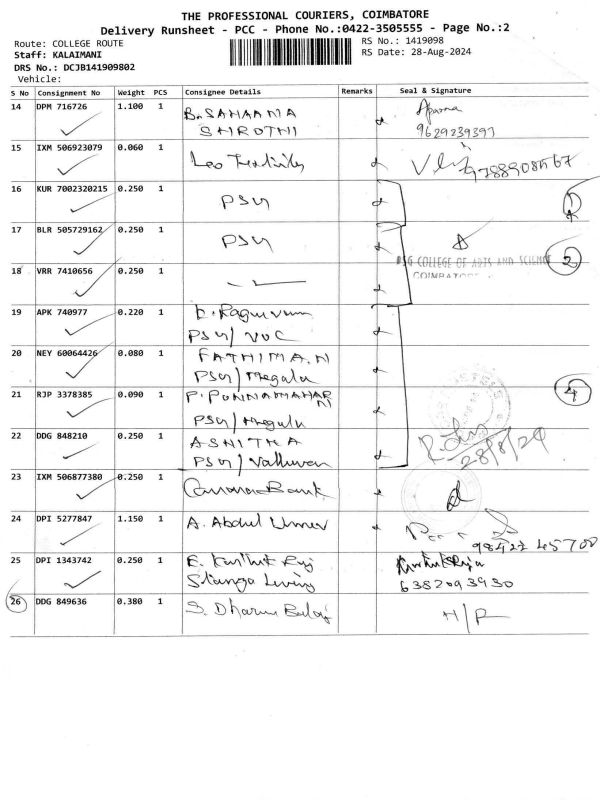 THE PROFESSIONAL COURIERS, COIMBATORE
Delivery Runsheet - PCC - Phone No.:0422-3505555 - Page No.:2
Route: COLLEGE ROUTE
RS No.: 1419098
Staff: KALAIMANI
RS Date: 28-Aug-2024
DRS No.: DCJB141909802
Vehicle:
S No Consignment No Weight PCS Consignee Details Remarks Seal & Signature
14 DPM 716726 1.100 1 B. SAHAANA
SHROTHI
9629239397
15 IXM 506923079 0.060 1 Leo
16 KUR 7002320215 0.250 1 PSG
1
17 BLR 505729162 0.250 1 PSG
PSG COLLEGE OF ARTS AND SCIENCE
2
COIMBATORE
18 VRR 7410656 0.250 1
19 APK 740977 0.220 1
PSG/ VOC
20 NEY 60064426 0.080 1 FATHIMA.N
PSG/ Megala
21 RJP 3378385 0.090 1 P. PONNAMAHARNI
PSG/ Megala
4
22 DDG 848210 0.250 1 ASHITHA
PSG/ Valluvan
28/8/24
23 IXM 506877380 0.250 1 Canara Bank
24 DPI 5277847 1.150 1 A. Abdul Umer
98422 45700
25 DPI 1343742 0.250 1 E. Karthik Raj
Living
6382093930
26 DDG 849636 0.380 1 S. Dharun Balaji
H/R